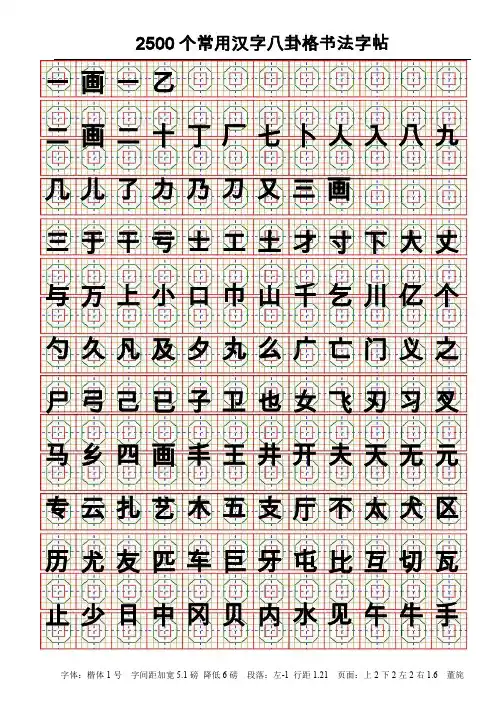 2500个常用汉字八卦格书法字帖
一画一乙
二画二十丁厂七卜人入八九
几儿了力乃刀又三画
三于干亏士工土才寸下大丈
与万上小口巾山千乞川亿个
勺久凡及夕丸么广亡门义之
尸弓己已子卫也女飞刃习叉
马乡四画丰王井开夫天无元
专云扎艺木五支厅不太犬区
历尤友匹车巨牙屯比互切瓦
止少日中冈贝内水见午牛手
字体：楷体1号 字间距加宽5.1磅 降低6磅 段落：左-1 行距1.21 页面：上2下2左2右1.6 董旄